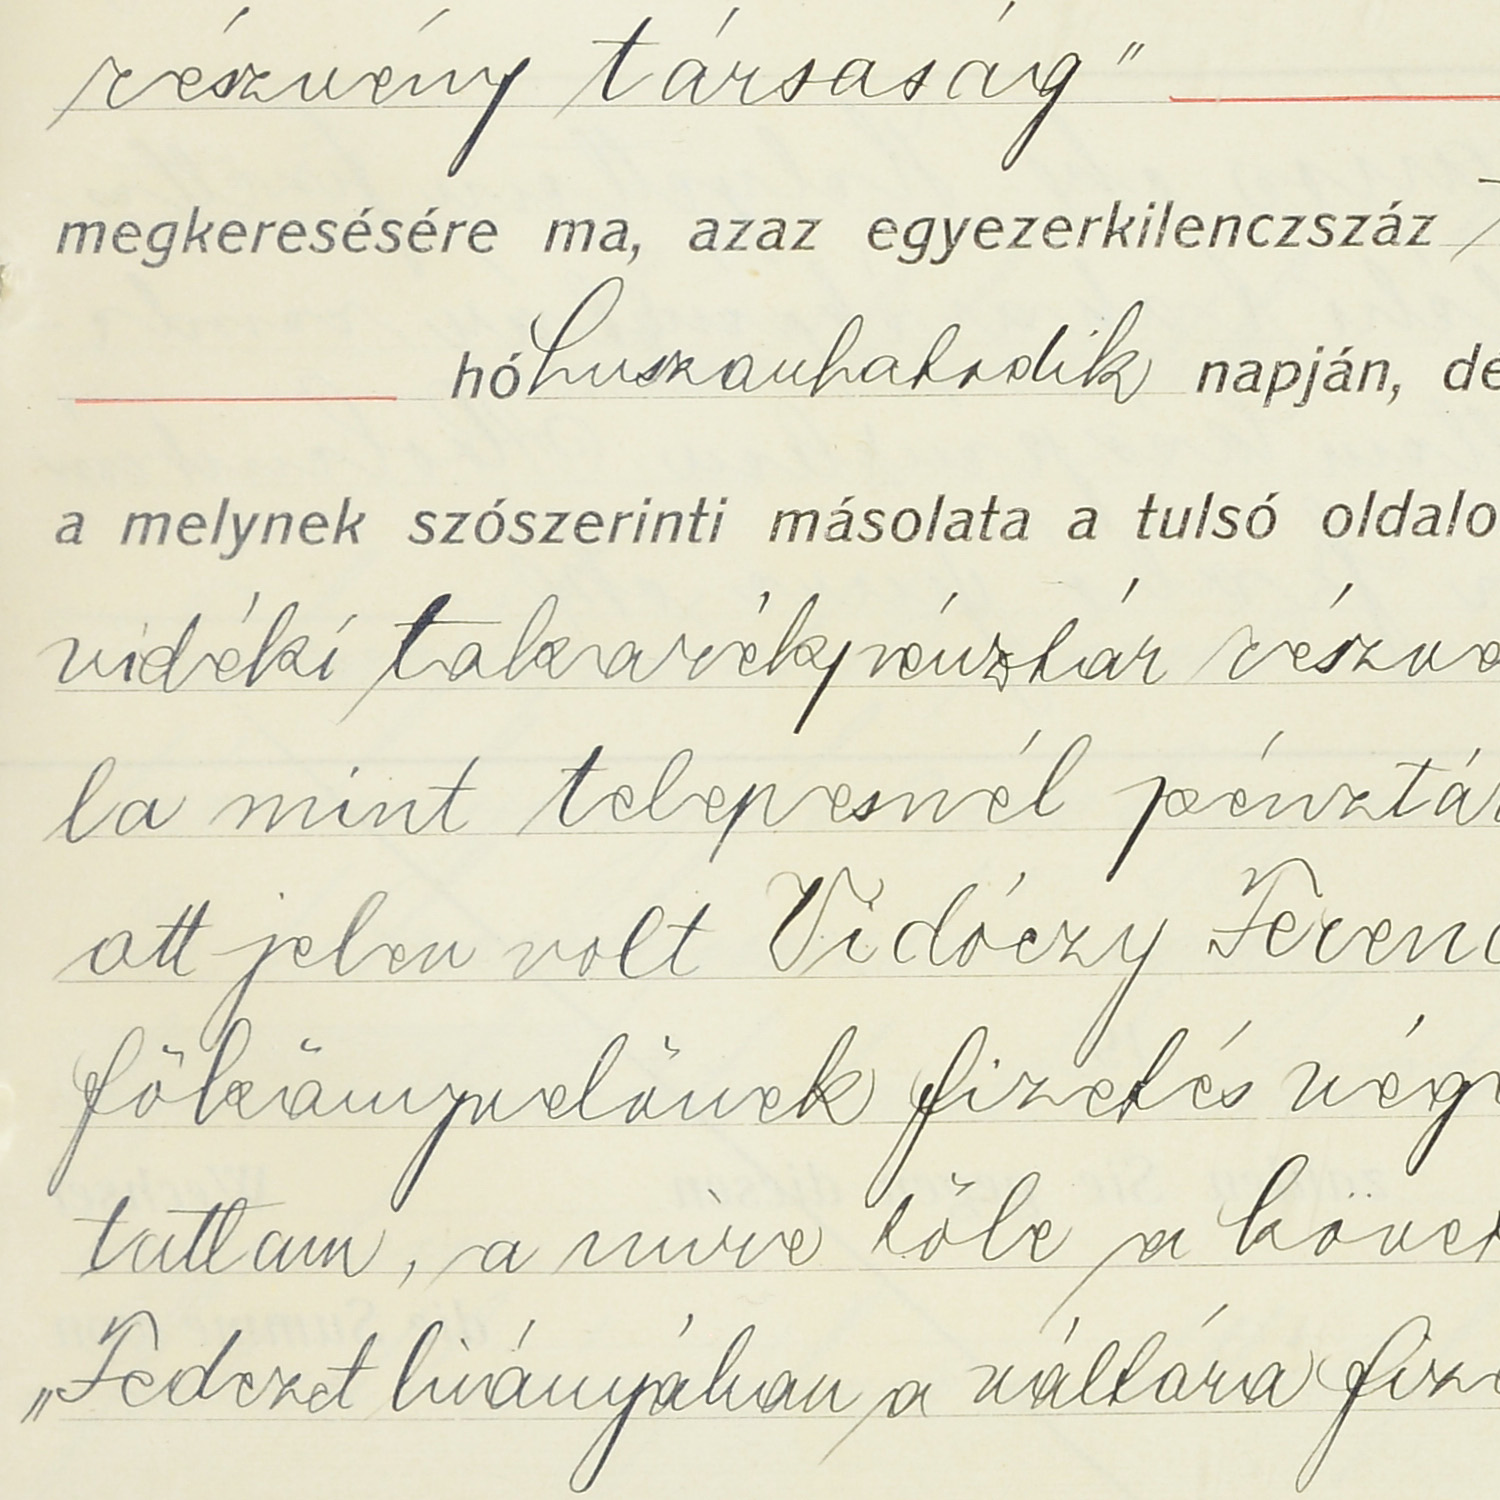 részvény társaság"
megkeresésére ma, azaz egyezerkilenczszáz
hó huszonhatodik napján, de
a melynek szószerinti másolata a tulsó oldalo
vidéki takarékpénztár részve
la mint telepesnél pénztár
ott jelen volt Vidóczy Ferenc
főkönyvelőnek fizetés vége
tattam, a mire tőle a követ
„Fedezet hiányában a váltóra fize